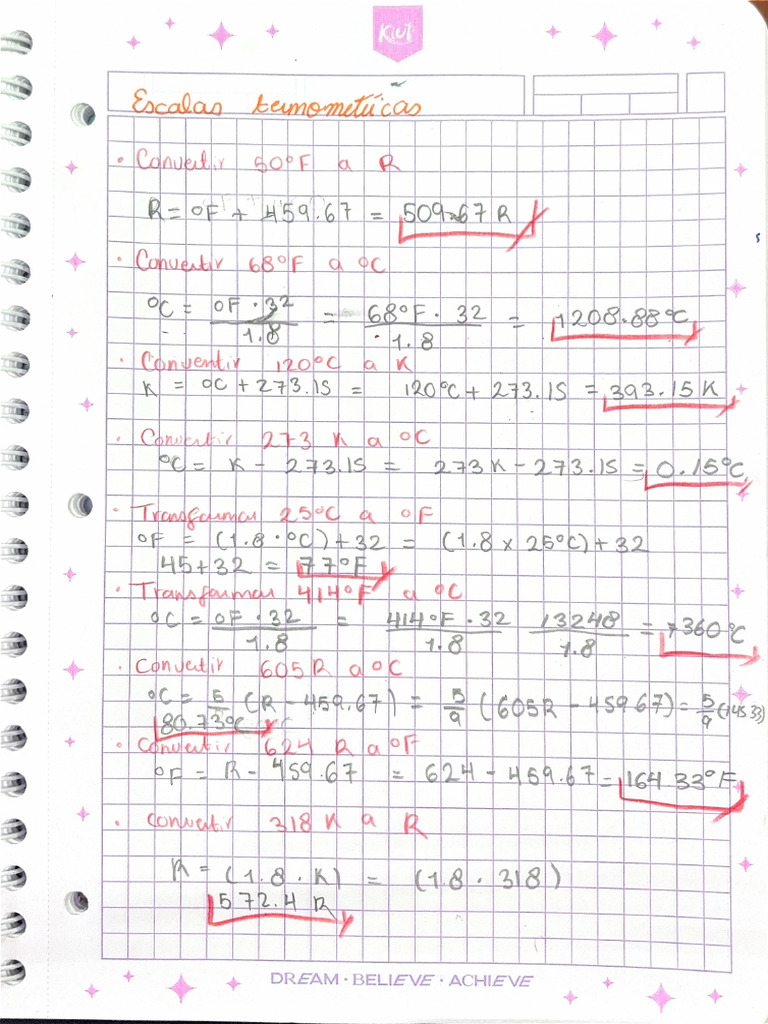 Kiut
Escalas termometricas
• Convertir 50°F a R
R = °F + 459.67 = 509.67 R
• Convertir 68°F a °C
°C = °F · 32 / 1.8 = 68°F · 32 / 1.8 = 1208.88°C
• Conventir 120°C a K
K = °C + 273.15 = 120°C + 273.15 = 393.15 K
• Convertir 273 K a °C
°C = K - 273.15 = 273K - 273.15 = 0.15°C
• Transformar 25°C a °F
°F = (1.8 · °C) + 32 = (1.8 x 25°C) + 32
45 + 32 = 77°F
• Transformar 414°F a °C
°C = °F · 32 / 1.8 = 414°F · 32 / 1.8 13248 / 1.8 = 7360°C
• Convertir 605 R a °C
°C = 5/9 (R - 459.67) = 5/9 (605R - 459.67) = 5/9 (145.33)
80.73°C
• Convertir 624 R a °F
°F = R - 459.67 = 624 - 459.67 = 164.33°F
• Convertir 318 K a R
R = (1.8 · K) = (1.8 · 318)
572.4 R
DREAM · BELIEVE · ACHIEVE